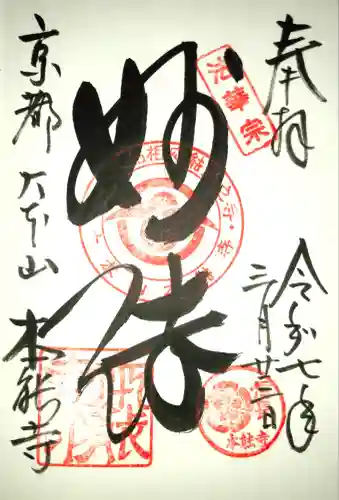 奉拝
法華宗
令和七年
三月廿三日
妙法
京都 大本山
本能寺
本能寺